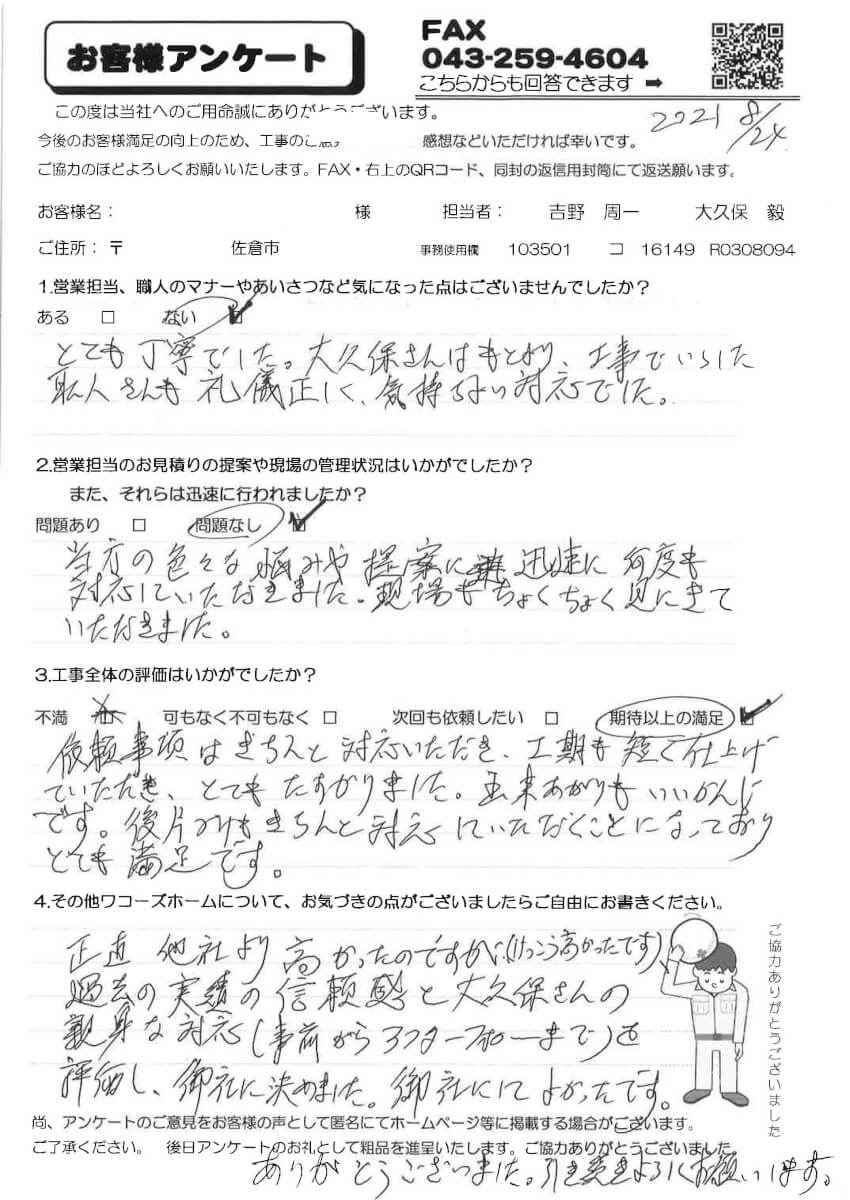 お客様アンケート
FAX
043-259-4604
こちらからも回答できます ➡
この度は当社へのご用命誠にありがとうございます。
2021 8/24
今後のお客様満足の向上のため、工事のご感 感想などいただければ幸いです。
ご協力のほどよろしくお願いいたします。FAX・右上のQRコード、同封の返信用封筒にて返送願います。
お客様名： 様 担当者： 吉野 周一 大久保 毅
ご住所：〒 佐倉市 事務使用欄 103501 コ 16149 R0308094
1.営業担当、職人のマナーやあいさつなど気になった点はございませんでしたか？
ある □ ない ☑
とても丁寧でした。大久保さんはもとより、工事でいらした
職人さんも礼儀正しく、気持ちよい対応でした。
2.営業担当のお見積りの提案や現場の管理状況はいかがでしたか？
また、それらは迅速に行われましたか？
問題あり □ 問題なし ☑
当方の色々な悩みや提案に迅速に何度も
対応していただきました。現場もちょくちょく見にきて
いただきました。
3.工事全体の評価はいかがでしたか？
不満 □ 可もなく不可もなく □ 次回も依頼したい □ 期待以上の満足 ☑
依頼事項はきちんと対応いただき、工期も短く仕上げ
ていただき、とてもたすかりました。出来あがりもいいかんじ
です。後片づけもきちんと対応していただくことになっており
とても満足です。
4.その他ワコーズホームについて、お気づきの点がございましたらご自由にお書きください。
正直 他社より高かったのですが(けっこう高かったです)
過去の実績の信頼感と大久保さんの
親身な対応(事前からアフターフォローまで)を
評価し、御社に決めました。御社にしてよかったです。
ご協力ありがとうございました
尚、アンケートのご意見をお客様の声として匿名にてホームページ等に掲載する場合がございます。
ご了承ください。 後日アンケートのお礼として粗品を進呈いたします。ご協力ありがとうございました。
ありがとうございました。引き続きよろしくお願いします。